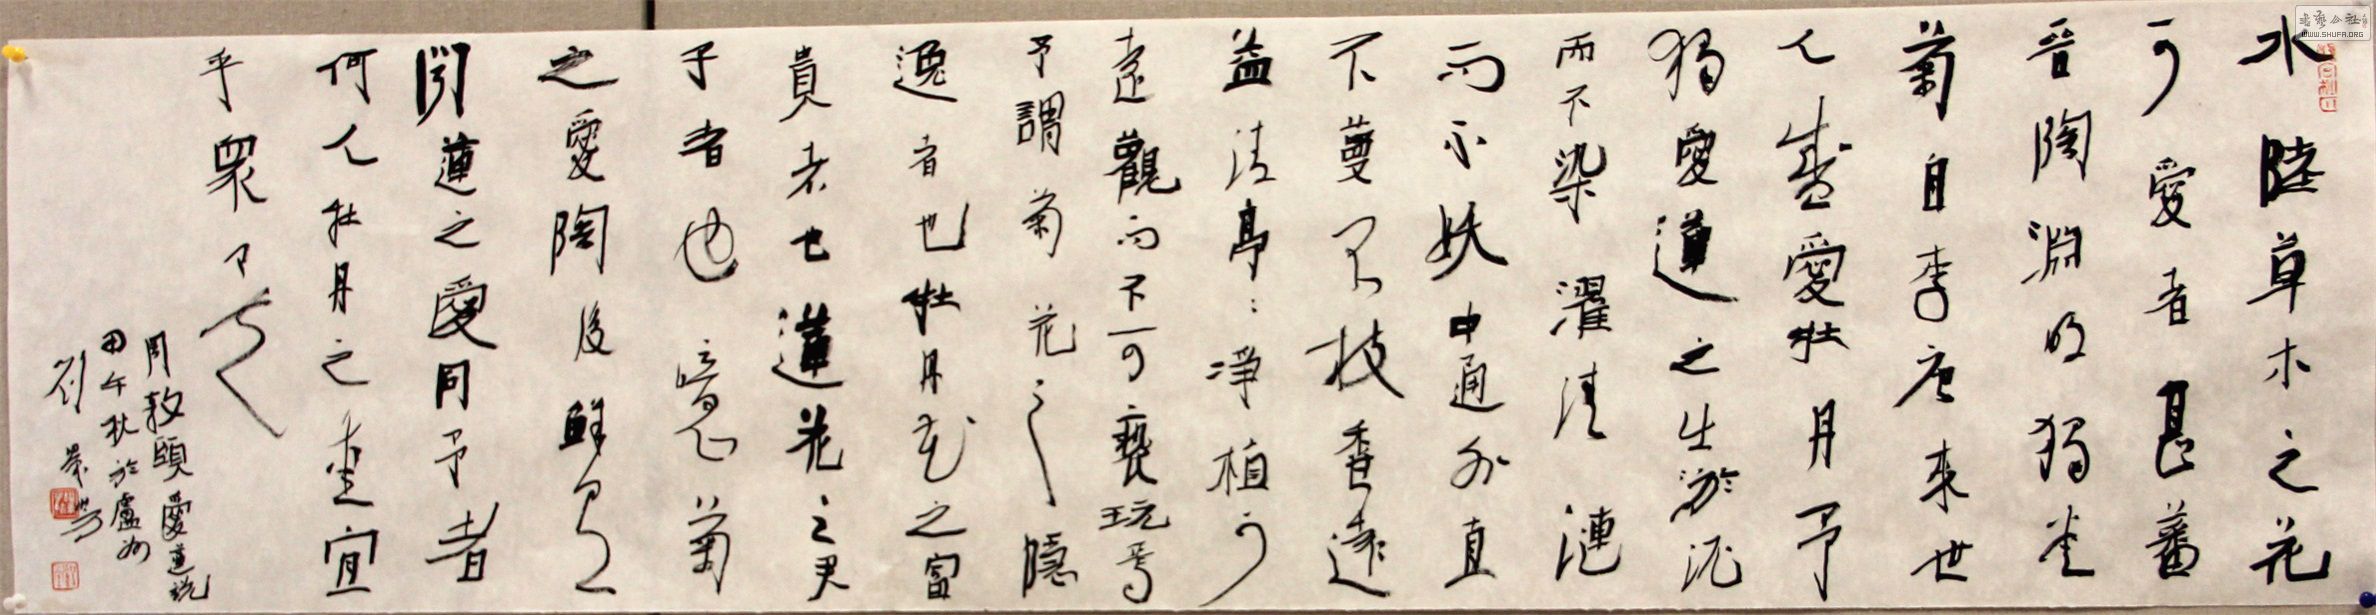 水陸草木之花
可愛者甚蕃
晉陶淵明獨愛
菊自李唐來世
人盛愛牡丹予
獨愛蓮之出淤泥
而不染濯清漣
而不妖中通外直
不蔓不枝香遠
益清亭:淨植可
遠觀而不可褻玩焉
予謂菊花之隱
逸者也牡丹花之富
貴者也蓮花之君
子者也噫菊
之愛陶後鮮有
聞蓮之愛同予者
何人牡丹之愛宜
乎眾矣
周敦頤愛蓮說
甲午秋於廬州
劉
WWW.SHUFA.ORG